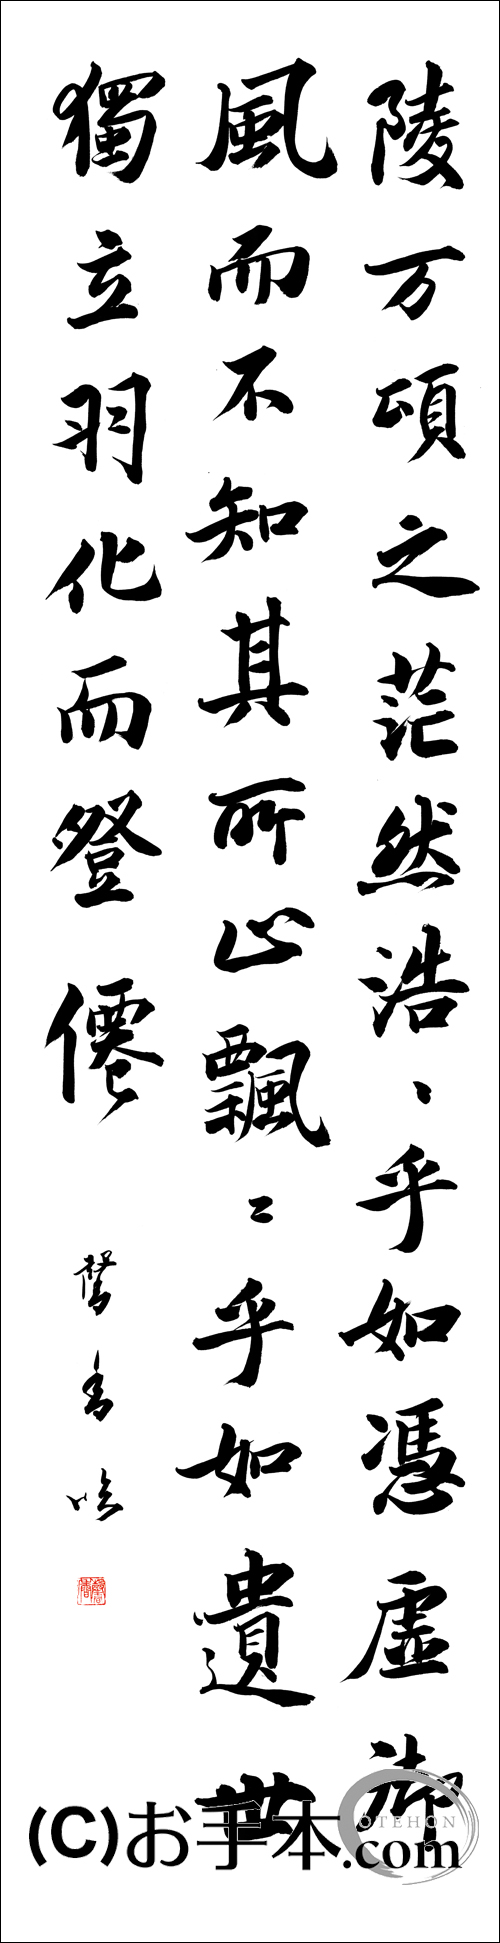 陵万頃之茫然浩〻乎如憑虚御
風而不知其所止飄〻乎如遺世
獨立羽化而登僊
香臨
(C)お手本.com
OTEHON